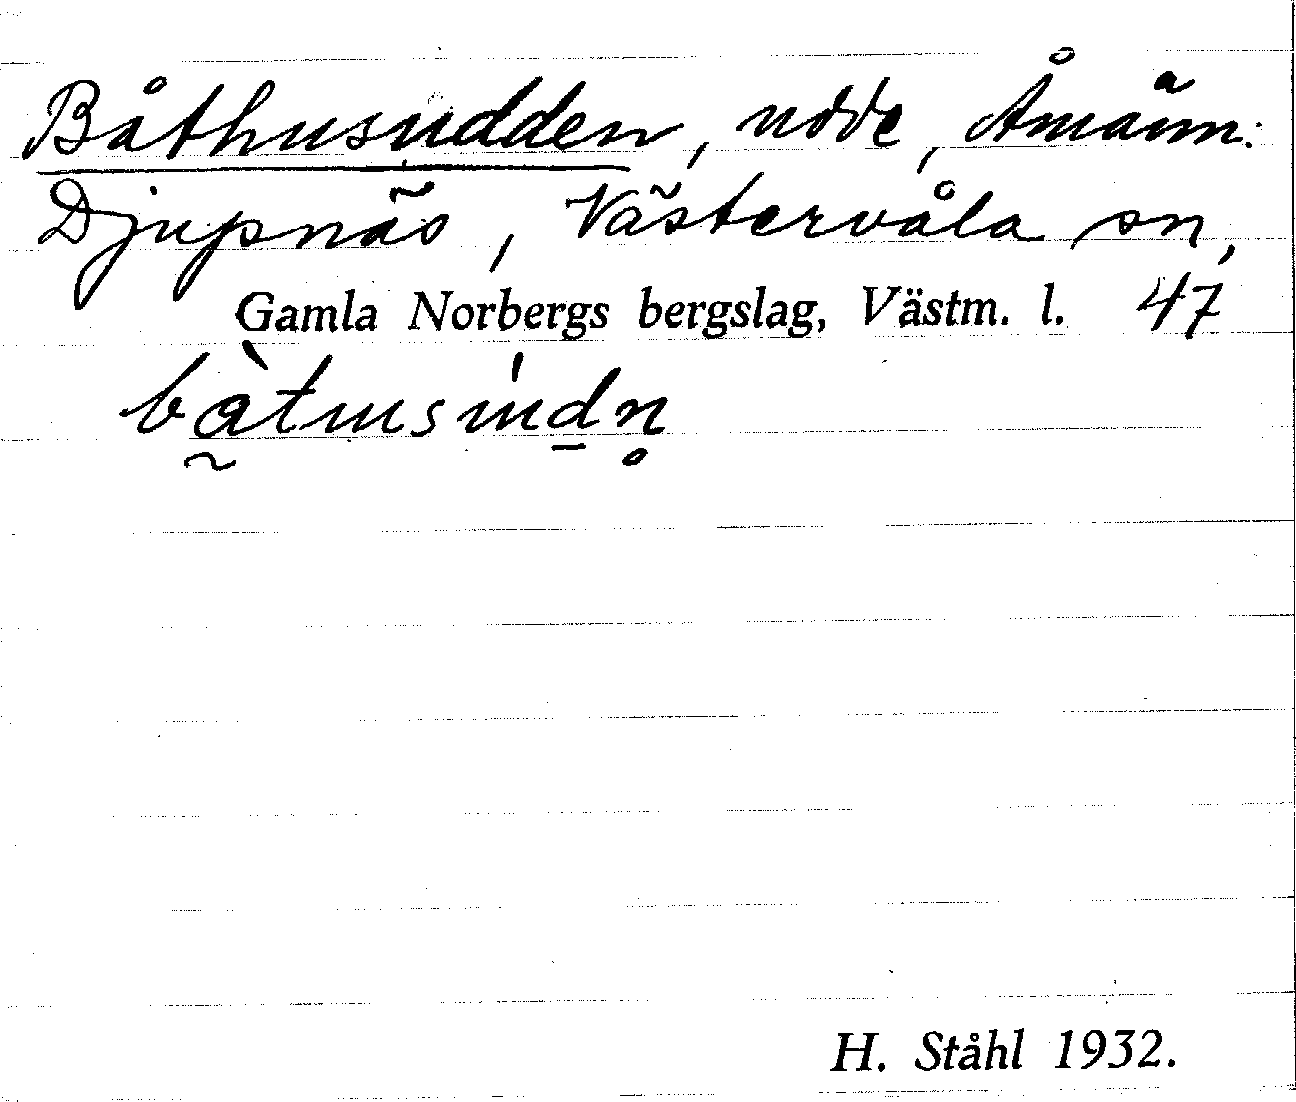 Båthusudden, udde, Åmänn:
Djupnäs, Västervåla sn,
Gamla Norbergs bergslag, Västm. l. 47
H. Ståhl 1932.